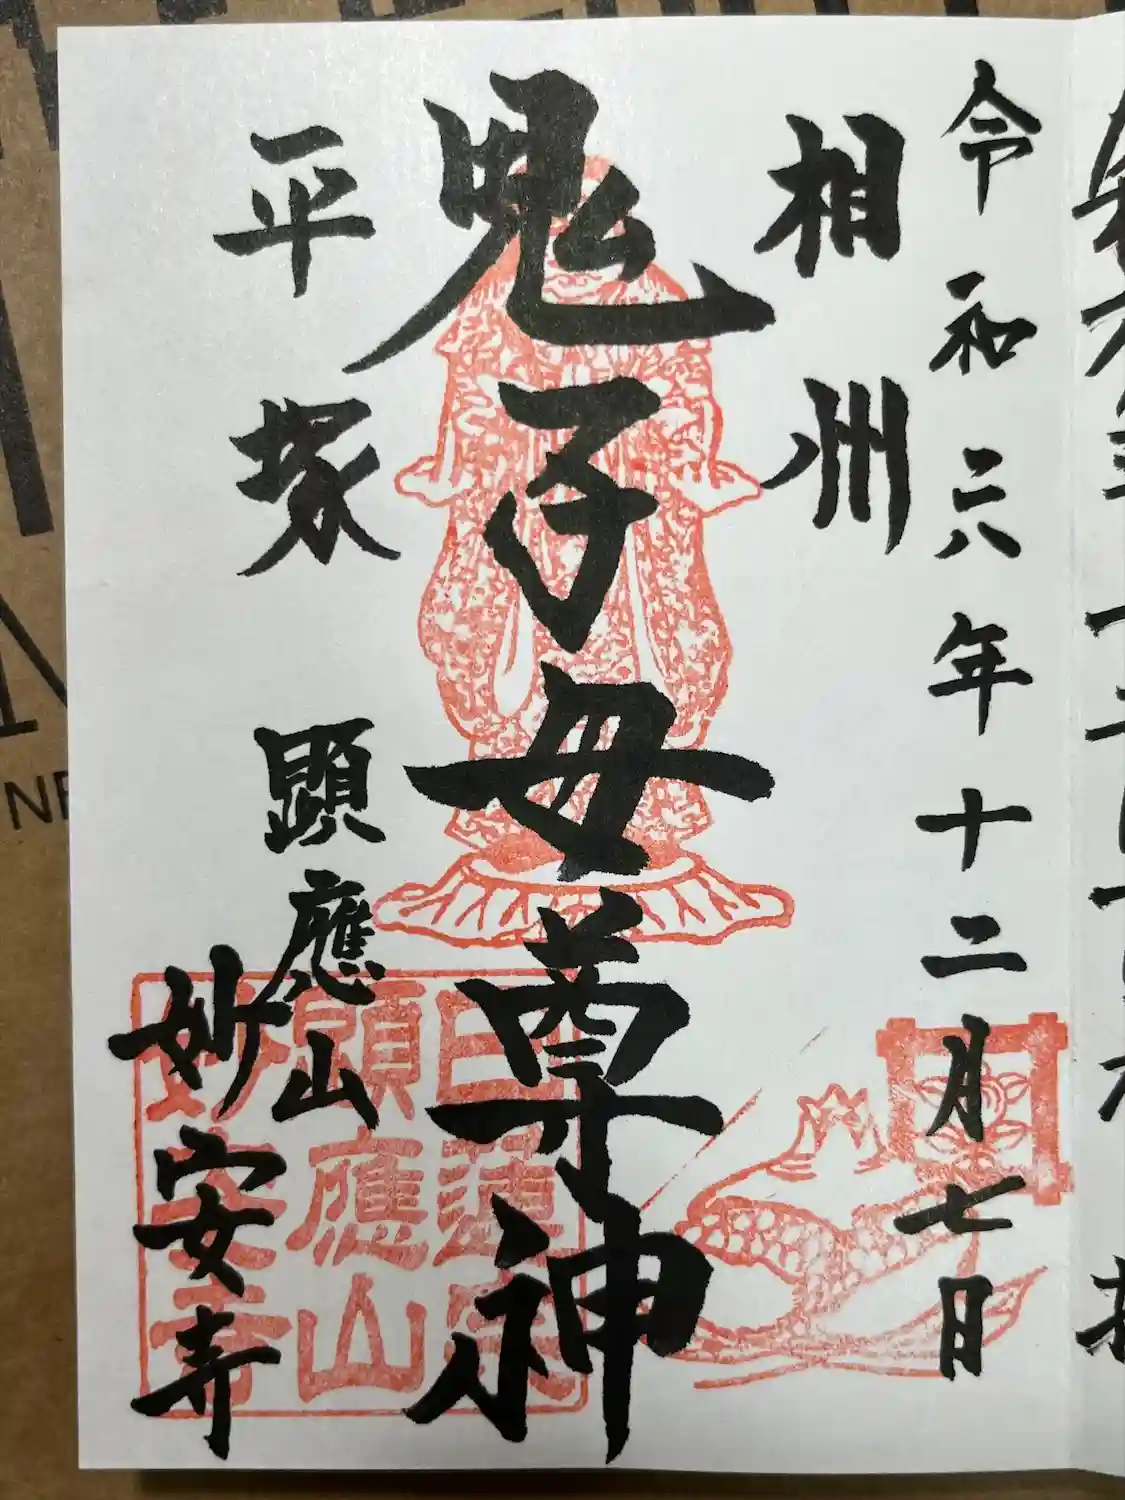 令和六年十二月七日
相州
鬼子母尊神
平塚
顕應山
妙安寺
日蓮宗
顕應山
妙安寺